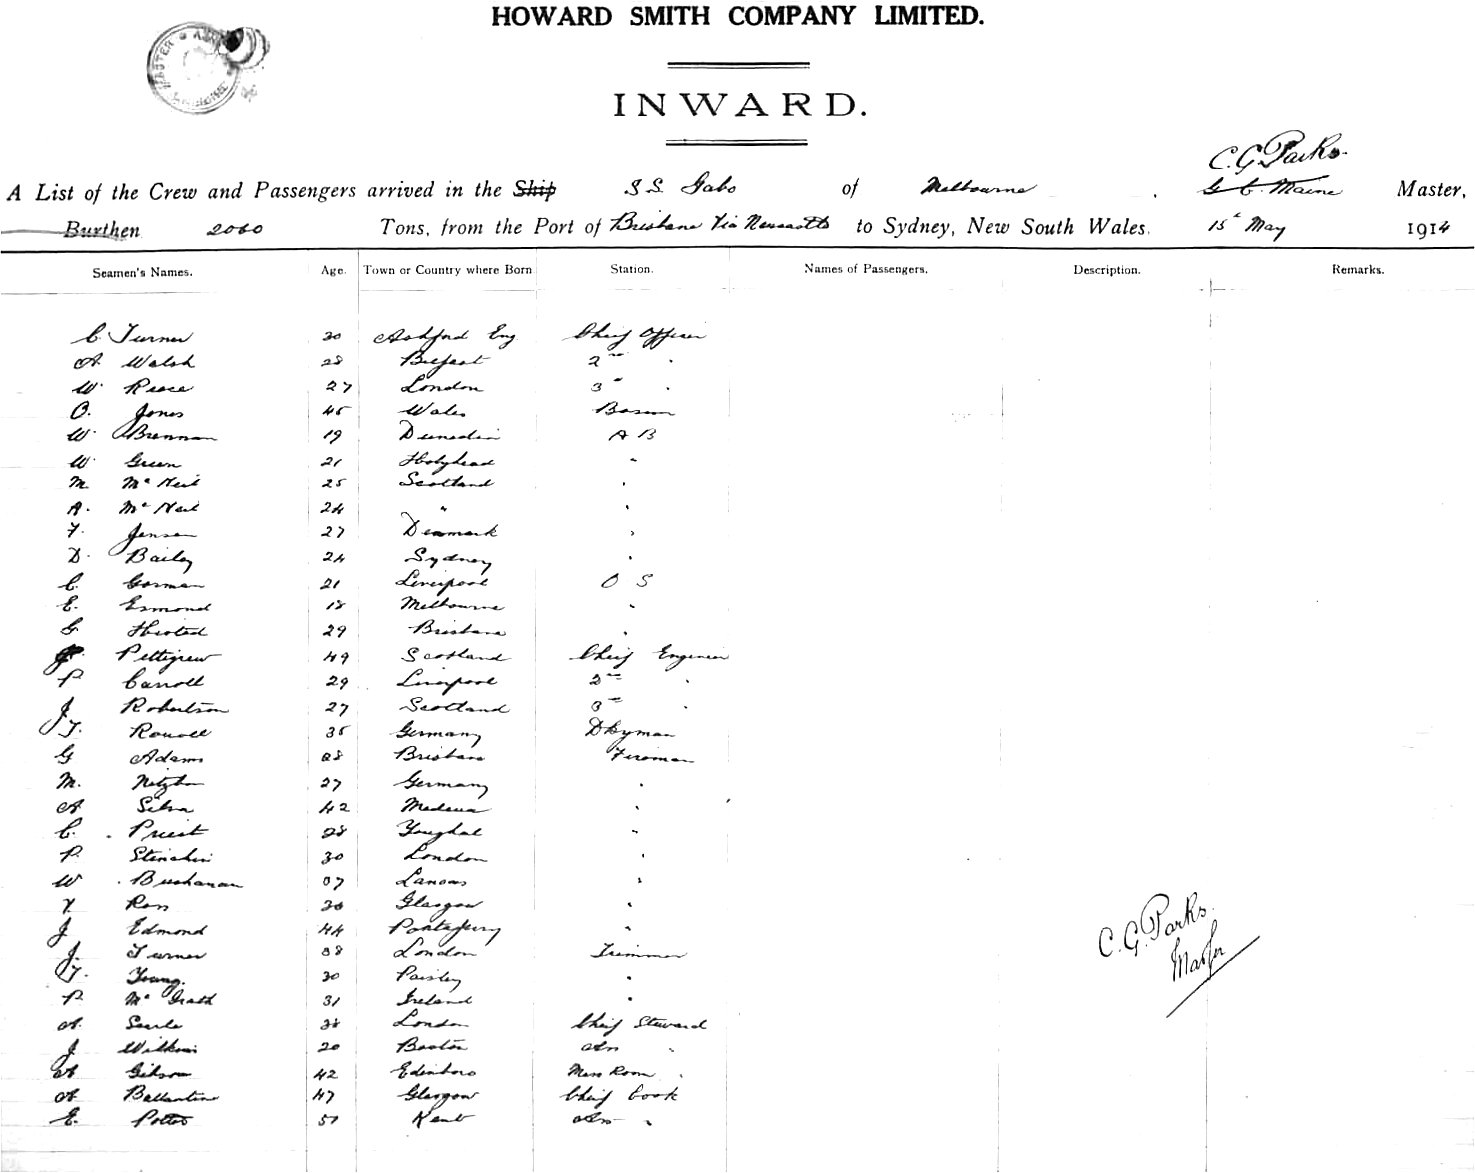 HOWARD SMITH COMPANY LIMITED.
INWARD.
C. G. Parks.
A List of the Crew and Passengers arrived in the Ship S.S. Gabo of Melbourne. G. C. Maine Master,
Burthen 2060 Tons, from the Port of Brisbane Via Newcastle to Sydney, New South Wales. 15th May 1914
Seamen's Names. Age. Town or Country where Born Station. Names of Passengers. Description. Remarks.
C. Turner 30 Ashford Eng Chief Officer
A Walsh 28 Belfast 2nd "
W. Reece 27 London 3rd "
O. Jones 45 Wales Bosun
W. Brennan 19 Dunedin A B
W. Green 21 Holyhead "
M McNeil 25 Scotland "
A. McNeil 24 " "
F. Jensen 27 Denmark "
D. Bailey 24 Sydney "
C. Gorman 21 Liverpool O S
E. Esmond 18 Melbourne "
G. 29 Brisbane "
J. Pettigrew 49 Scotland Chief Engineer
P Carroll 29 Liverpool 2nd "
J. Robertson 27 Scotland 3rd "
T. 35 Germany Dkyman
G Adams 28 Brisbane Fireman
M. 27 Germany "
A Silva 42 "
C. Priest 28 Youghal "
P. 30 London "
W. Buchanan 37 Lancas "
Ross Glasgow "
J Edmond 44 "
J. Turner 38 London Trimmer
T. Young. 30 Paisley "
P. McGrath 31 Ireland "
A. Searle London Chief Steward
J Wilkins 20 Boston Asn "
A Gibson 42 Edinboro Mess Room "
A Ballantine 47 Glasgow Chief Cook
E. Potter 51 Kent Asn "
C. G. Parks.
Master